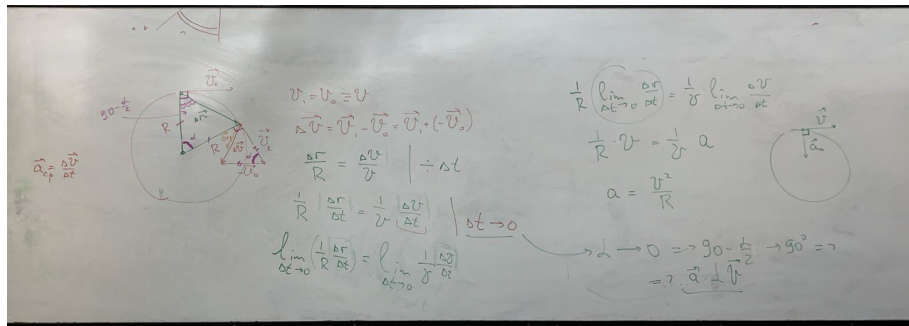 90-α/2
R
Δr⃗
v⃗₀
α
R
Δv⃗
v⃗₁
-v⃗₀
a⃗cp = Δv⃗/Δt
v₁ = v₀ ≡ v
Δv⃗ = v⃗₁ - v⃗₀ = v⃗₁ + (-v⃗₀)
Δr/R = Δv/v | ÷ Δt
1/R Δr/Δt = 1/v Δv/Δt | Δt → 0
lim Δt→0 (1/R Δr/Δt) = lim Δt→0 1/v Δv/Δt
1/R lim Δt→0 Δr/Δt = 1/v lim Δt→0 Δv/Δt
1/R · v = 1/v a
a = v²/R
v⃗
a⃗
→ α → 0 => 90 - α/2 → 90° =>
=> a⃗ ⊥ v⃗